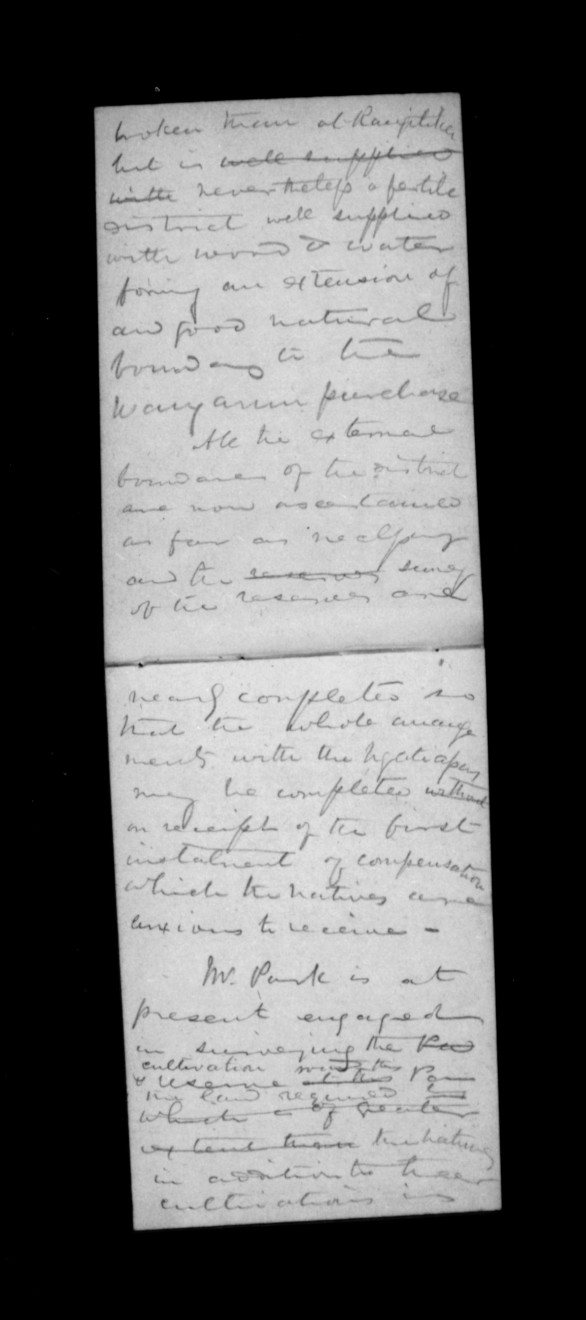 broken than at Rangitikei
but is well supplied
with nevertheless a fertile
district well supplied
with wood & water
foring an extension of
and good natural
boundary to the
Wanganui purchase
All the external
boundares of the district
are now ascertained
as far as
and the reserves survey
of the reserves are
nearly completed so
that the whole arrange
ments with the Ngatiapa
may be completed without
on receipt of the first
instalment of compensation
which the natives are
anxious to receive -
Mr. Park is at
present engaged
in surveying the
cultivation round the
& reserve at this Pa
the land required
which is of greater
extent than the natives
in addition to their
cultivations is